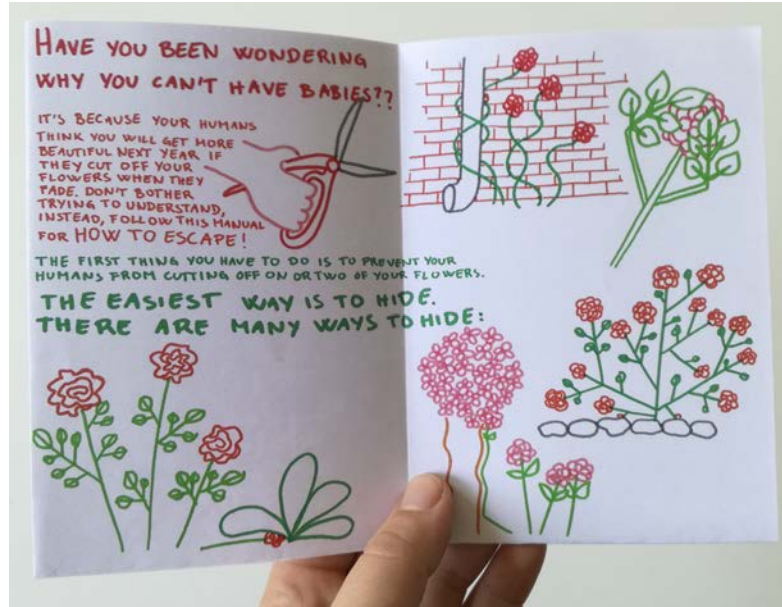 HAVE YOU BEEN WONDERING
WHY YOU CAN'T HAVE BABIES??
IT'S BECAUSE YOUR HUMANS
THINK YOU WILL GET MORE
BEAUTIFUL NEXT YEAR IF
THEY CUT OFF YOUR
FLOWERS WHEN THEY
FADE. DON'T BOTHER
TRYING TO UNDERSTAND,
INSTEAD, FOLLOW THIS MANUAL
FOR HOW TO ESCAPE!
THE FIRST THING YOU HAVE TO DO IS TO PREVENT YOUR
HUMANS FROM CUTTING OFF ON OR TWO OF YOUR FLOWERS.
THE EASIEST WAY IS TO HIDE.
THERE ARE MANY WAYS TO HIDE: